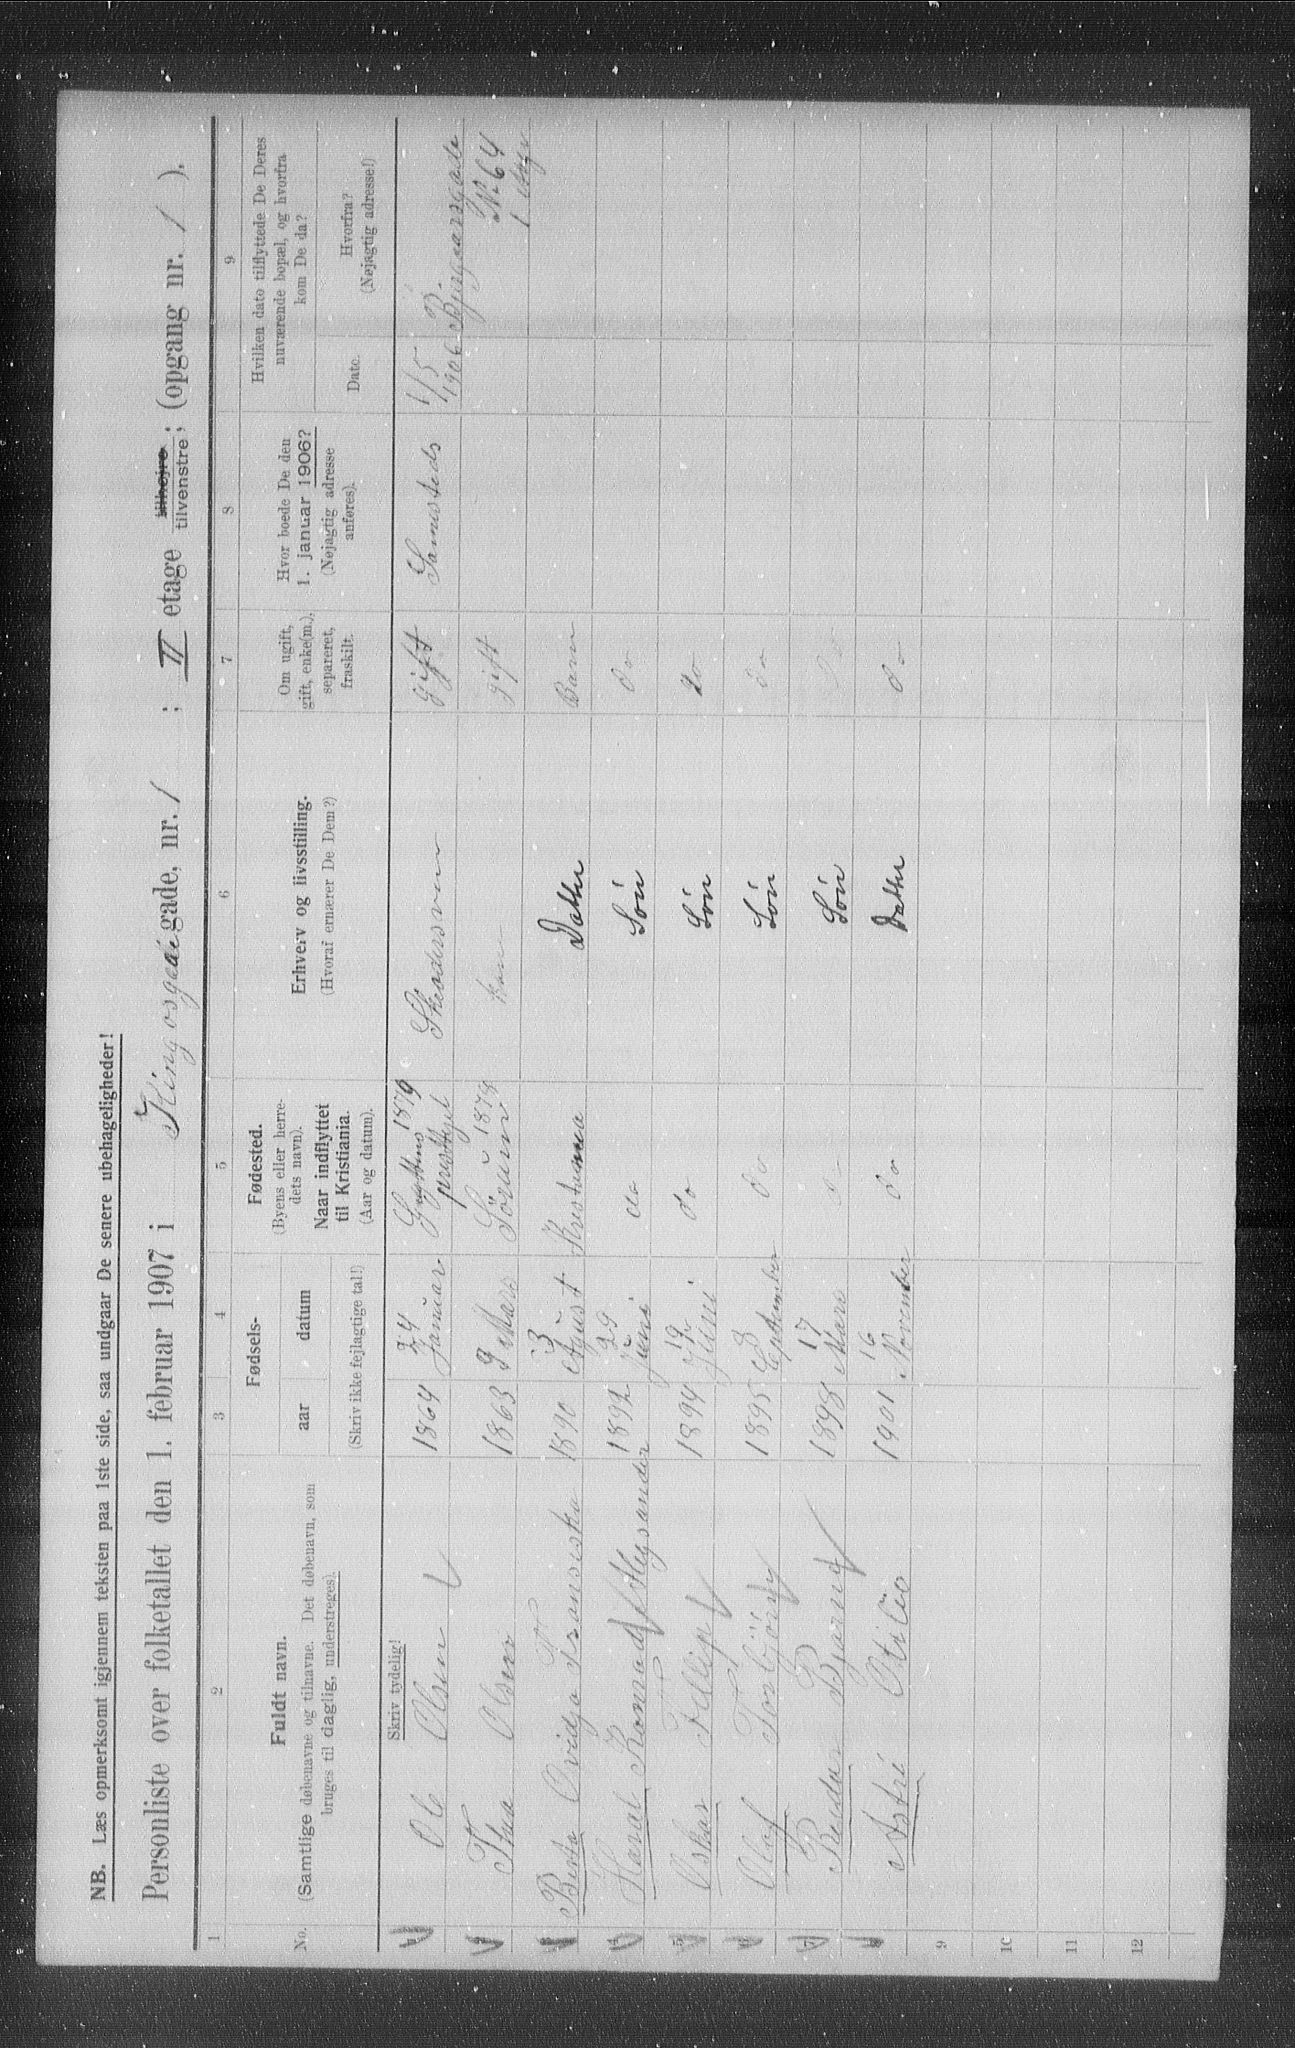 NB. Læs opmerksomt igjennem teksten paa 1ste side, saa undgaar De senere ubehageligheder!
Personliste over folketallet den 1. februar 1907 i Kingosgade gade, nr. 1 ; II etage tilhøjre tilvenstre; (opgang nr. 1 ).
1 2 3 4 5 6 7 8 9
No.
Fuldt navn.
(Samtlige døbenavne og tilnavne. Det døbenavn, som
bruges til daglig, understreges).
Fødsels-
aar datum
(Skriv ikke fejlagtige tal!)
Fødested.
(Byens eller herre-
dets navn).
Naar indflyttet
til Kristiania.
(Aar og datum).
Erhverv og livsstilling.
(Hvoraf ernærer De Dem?)
Om ugift,
gift, enke(m.),
separeret,
fraskilt.
Hvor boede De den
1. januar 1906?
(Nøjagtig adresse
anføres).
Hvilken dato tilflyttede De Deres
nuværende bopæl, og hvorfra
kom De da?
Dato.
Hvorfra?
(Nøjagtig adresse!)
Skriv tydelig!
1 Ole Olsen 1864 24 Januar 1879 gift 1/5 1906
2 Thea Olsen 1863 9 Mars Sørum 1878 kone gift No 64 1 Etage
3 Berta Ovidja Fransiska 1890 3 Agust Kristiania Datter Barn
4 Haral Konrad 1892 29 Juni do Søn do
5 Oskar Fillip 1894 12 Juni do Søn do
6 Olaf Torbjørn 1895 8 September do Søn do
7 Reidar Bjarne 1898 17 Mars do Søn do
8 Astri Otilie 1901 16 November do Datter do
9
10
11
12